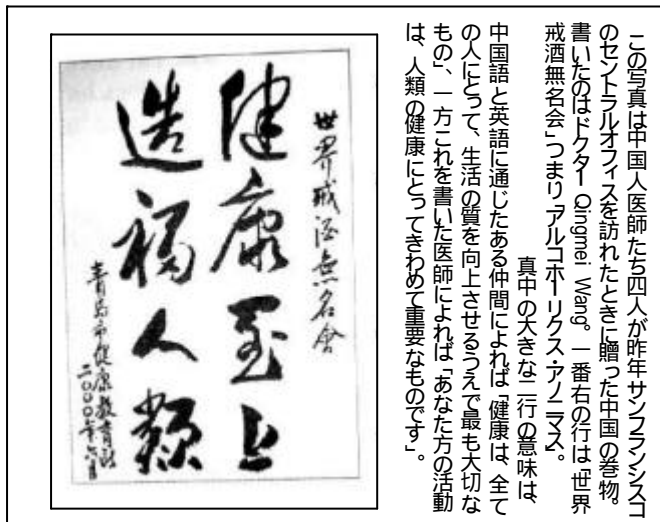 この写真は中国人医師たち四人が昨年サンフランシスコ
のセントラルオフィスを訪れたときに贈った中国の巻物。
書いたのはドクターQingmei Wang。一番右の行は「世界
戒酒無名会」つまり「アルコホーリクス・アノニマス」。
真中の大きな二行の意味は、
中国語と英語に通じたある仲間によれば「健康は、全て
の人にとって、生活の質を向上させるうえで最も大切な
もの」、一方これを書いた医師によれば「あなた方の活動
は、人類の健康にとってきわめて重要なものです」。
世界戒酒無名會
健康至上
造福人類
青島市健康教育所
二〇〇〇年六月